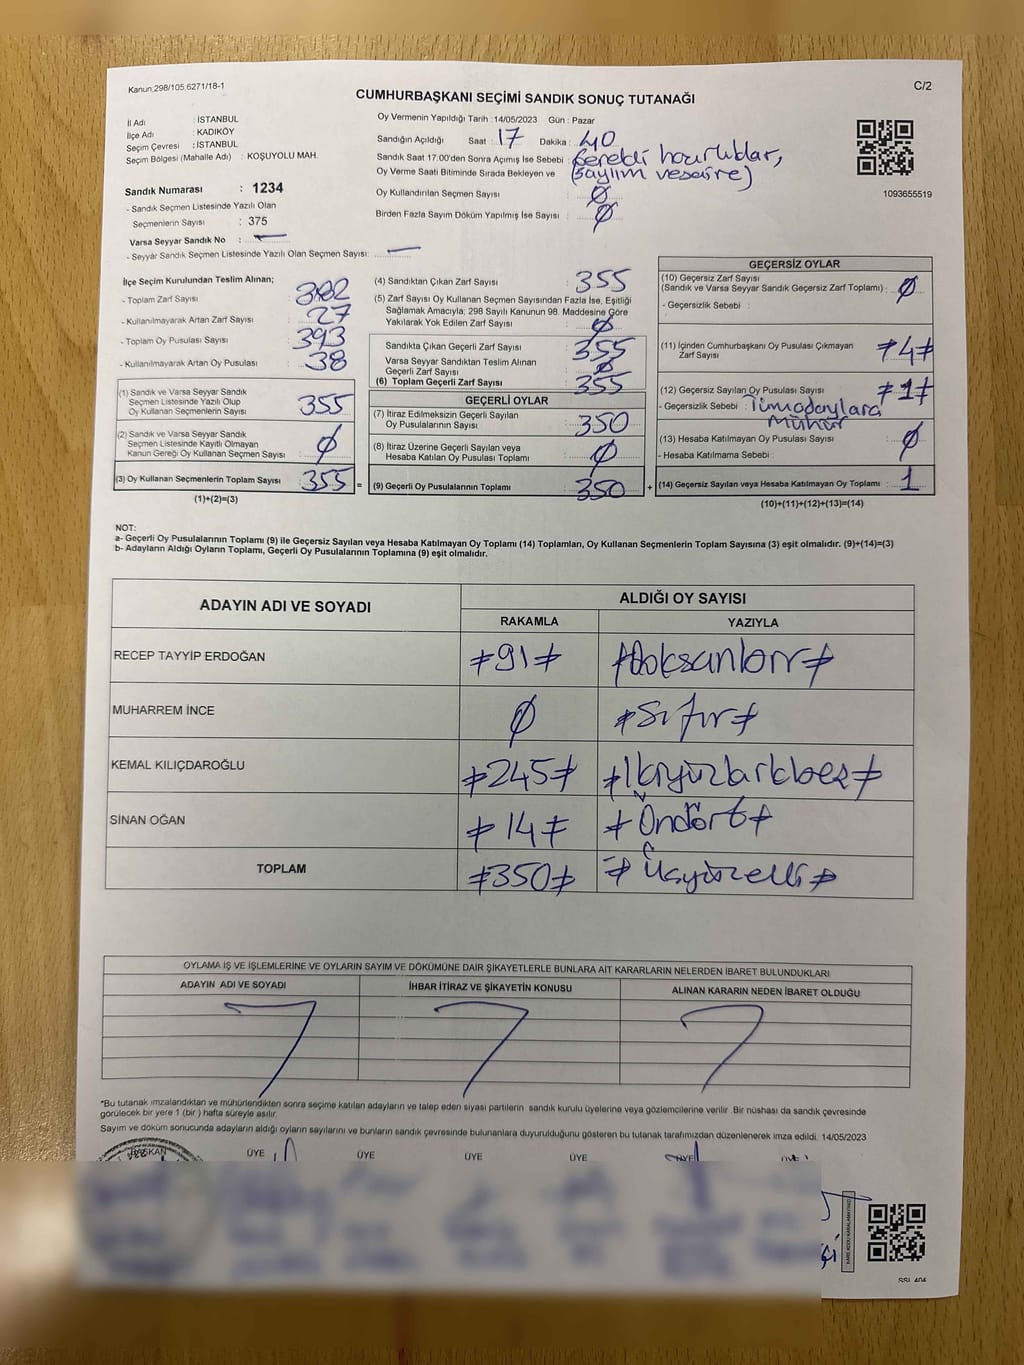 Kanun:298/105,6271/18-1
C/2
CUMHURBAŞKANI SEÇİMİ SANDIK SONUÇ TUTANAĞI
İl Adı : İSTANBUL
İlçe Adı : KADIKÖY
Seçim Çevresi : İSTANBUL
Seçim Bölgesi (Mahalle Adı) : KOŞUYOLU MAH.
Sandık Numarası : 1234
- Sandık Seçmen Listesinde Yazılı Olan
Seçmenlerin Sayısı : 375
Varsa Seyyar Sandık No :
- Seyyar Sandık Seçmen Listesinde Yazılı Olan Seçmen Sayısı:
Oy Vermenin Yapıldığı Tarih : 14/05/2023 Gün : Pazar
Sandığın Açıldığı Saat : 17 Dakika : 40
Sandık Saat 17.00'den Sonra Açımış İse Sebebi : Gerekli hazırlıklar,
Oy Verme Saati Bitiminde Sırada Bekleyen ve (sayım vesaire)
Oy Kullandırılan Seçmen Sayısı : 0
Birden Fazla Sayım Döküm Yapılmış İse Sayısı : 0
1093655519
İlçe Seçim Kurulundan Teslim Alınan;
- Toplam Zarf Sayısı : 382
- Kullanılmayarak Artan Zarf Sayısı : 27
- Toplam Oy Pusulası Sayısı : 393
- Kullanılmayarak Artan Oy Pusulası : 38
(1) Sandık ve Varsa Seyyar Sandık
Seçmen Listesinde Yazılı Olup
Oy Kullanan Seçmenlerin Sayısı : 355
(2) Sandık ve Varsa Seyyar Sandık
Seçmen Listesinde Kayıtlı Olmayan
Kanun Gereği Oy Kullanan Seçmen Sayısı : 0
(3) Oy Kullanan Seçmenlerin Toplam Sayısı : 355 =
(1)+(2)=(3)
(4) Sandıktan Çıkan Zarf Sayısı : 355
(5) Zarf Sayısı Oy Kullanan Seçmen Sayısından Fazla İse, Eşitliği
Sağlamak Amacıyla; 298 Sayılı Kanunun 98. Maddesine Göre
Yakılarak Yok Edilen Zarf Sayısı : 0
Sandıkta Çıkan Geçerli Zarf Sayısı : 355
Varsa Seyyar Sandıktan Teslim Alınan
Geçerli Zarf Sayısı : 0
(6) Toplam Geçerli Zarf Sayısı : 355
GEÇERLİ OYLAR
(7) İtiraz Edilmeksizin Geçerli Sayılan
Oy Pusulalarının Sayısı : 350
(8) İtiraz Üzerine Geçerli Sayılan veya
Hesaba Katılan Oy Pusulası Toplamı : 0
(9) Geçerli Oy Pusulalarının Toplamı : 350 +
GEÇERSİZ OYLAR
(10) Geçersiz Zarf Sayısı
(Sandık ve Varsa Seyyar Sandık Geçersiz Zarf Toplamı) : 0
- Geçersizlik Sebebi :
(11) İçinden Cumhurbaşkanı Oy Pusulası Çıkmayan
Zarf Sayısı : ≠4≠
(12) Geçersiz Sayılan Oy Pusulası Sayısı : ≠1≠
- Geçersizlik Sebebi : Tüm adaylara
Mühür
(13) Hesaba Katılmayan Oy Pusulası Sayısı : 0
- Hesaba Katılmama Sebebi :
(14) Geçersiz Sayılan veya Hesaba Katılmayan Oy Toplamı : 1
(10)+(11)+(12)+(13)=(14)
NOT:
a- Geçerli Oy Pusulalarının Toplamı (9) ile Geçersiz Sayılan veya Hesaba Katılmayan Oy Toplamı (14) Toplamları, Oy Kullanan Seçmenlerin Toplam Sayısına (3) eşit olmalıdır. (9)+(14)=(3)
b- Adayların Aldığı Oyların Toplamı, Geçerli Oy Pusulalarının Toplamına (9) eşit olmalıdır.
ADAYIN ADI VE SOYADI
ALDIĞI OY SAYISI
RAKAMLA YAZIYLA
RECEP TAYYİP ERDOĞAN ≠91≠ ≠Doksanbir≠
MUHARREM İNCE 0 ≠Sıfır≠
KEMAL KILIÇDAROĞLU ≠245≠ ≠İkiyüzkırkbeş≠
SİNAN OĞAN ≠14≠ ≠Ondört≠
TOPLAM ≠350≠ ≠Üçyüzelli≠
OYLAMA İŞ VE İŞLEMLERİNE VE OYLARIN SAYIM VE DÖKÜMÜNE DAİR ŞİKAYETLERLE BUNLARA AİT KARARLARIN NELERDEN İBARET BULUNDUKLARI
ADAYIN ADI VE SOYADI İHBAR İTİRAZ VE ŞİKAYETİN KONUSU ALINAN KARARIN NEDEN İBARET OLDUĞU
*Bu tutanak imzalandıktan ve mühürlendikten sonra seçime katılan adayların ve talep eden siyasi partilerin sandık kurulu üyelerine veya gözlemcilerine verilir. Bir nüshası da sandık çevresinde
görülecek bir yere 1 (bir) hafta süreyle asılır.
Sayım ve döküm sonucunda adayların aldığı oyların sayılarını ve bunların sandık çevresinde bulunanlara duyurulduğunu gösteren bu tutanak tarafımızdan düzenlenerek imza edildi. 14/05/2023
BAŞKAN ÜYE ÜYE ÜYE ÜYE ÜYE ÜYE